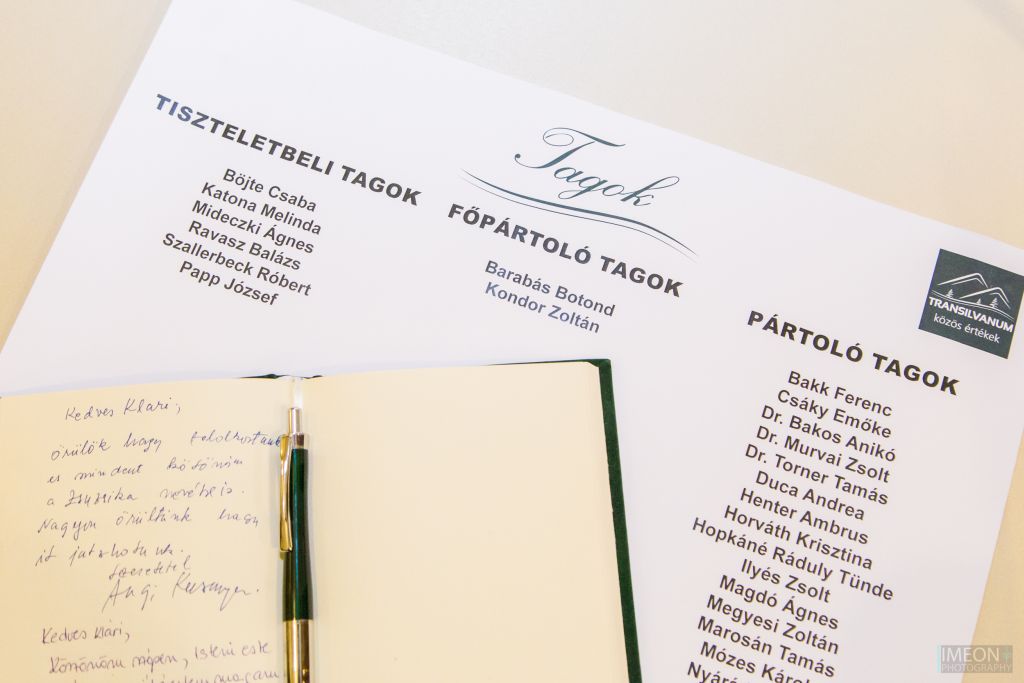 Tagok
TISZTELETBELI TAGOK
Böjte Csaba
Katona Melinda
Mideczki Ágnes
Ravasz Balázs
Szallerbeck Róbert
Papp József
FŐPÁRTOLÓ TAGOK
Barabás Botond
Kondor Zoltán
TRANSILVANUM
közös értékek
PÁRTOLÓ TAGOK
Bakk Ferenc
Csáky Emőke
Dr. Bakos Anikó
Dr. Murvai Zsolt
Dr. Torner Tamás
Duca Andrea
Henter Ambrus
Horváth Krisztina
Hopkáné Ráduly Tünde
Ilyés Zsolt
Magdó Ágnes
Megyesi Zoltán
Marosán Tamás
Mózes Károl
Nyárá
Kedves Klári,
örülök hogy
és mindent köszönöm
a Zsuzsika nevében is.
Nagyon örültünk hogy
it játszhatunk.
Szeretettel
Angi
Kedves Klári,
Köszönöm szépen, Isteni este
IMEON
PHOTOGRAPHY